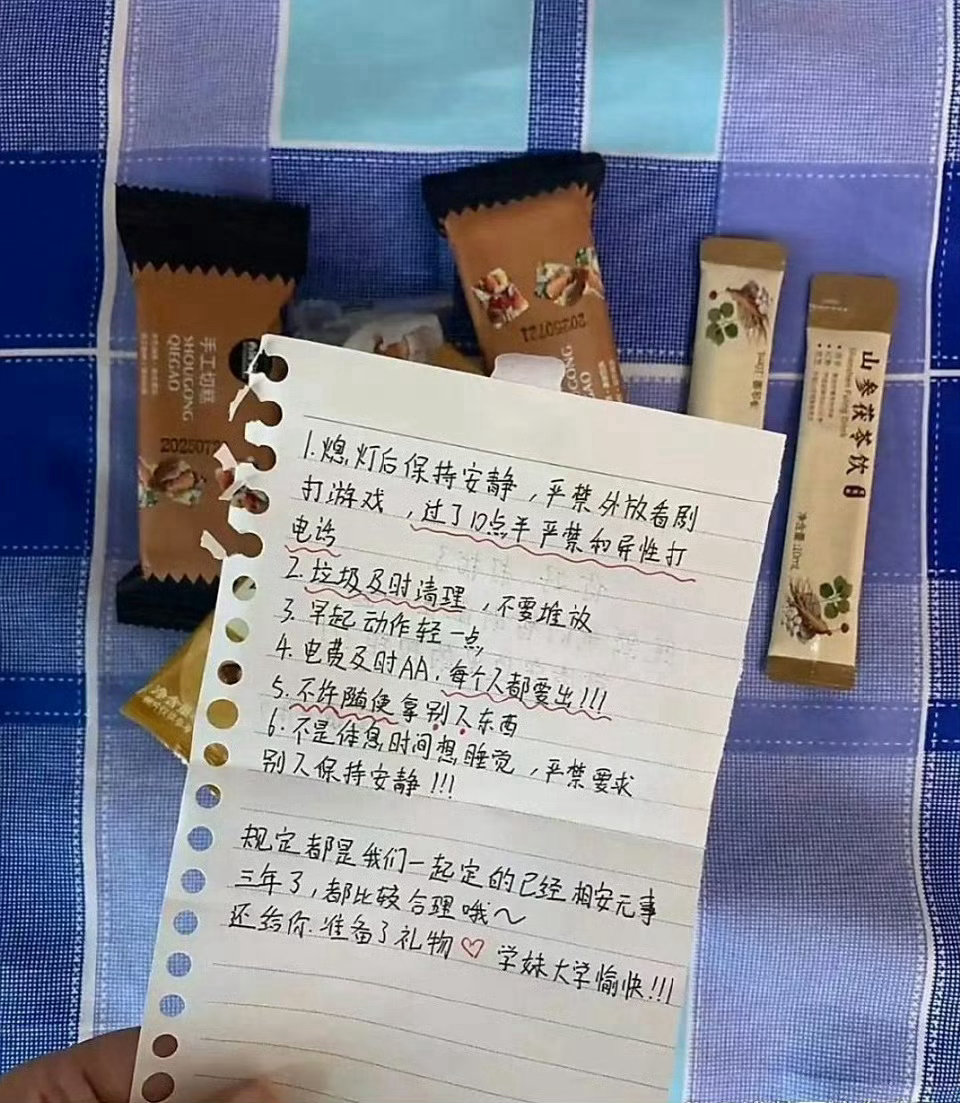 手工切糕
SHOUGONG
QIEGAO
20250721
山参茯苓饮
净含量:10ml
1.熄灯后保持安静,严禁外放看剧
打游戏,过了10点半严禁和异性打
电话
2.垃圾及时清理,不要堆放
3.早起动作轻一点
4.电费及时AA,每个人都要出!!!
5.不许随便拿别人东西
6.不是休息时间想睡觉,严禁要求
别人保持安静!!!
规定都是我们一起定的已经相安元事
三年了,都比较合理哦~
还给你准备了礼物♡ 学妹大学愉快!!!